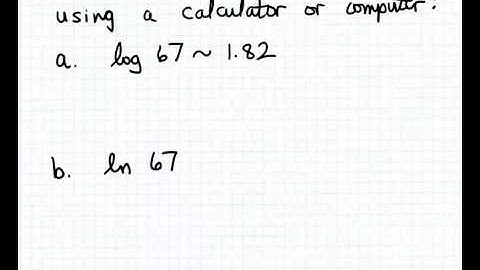 using a calculator or computer.
a. log 67 ~ 1.82
b. ln 67